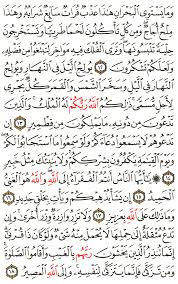 وَمَا يَسْتَوِى ٱلْبَحْرَانِ هَٰذَا عَذْبٌ فُرَاتٌ سَآئِغٌ شَرَابُهُۥ وَهَٰذَا
مِلْحٌ أُجَاجٌ وَمِن كُلٍّ تَأْكُلُونَ لَحْمًا طَرِيًّا وَتَسْتَخْرِجُونَ
حِلْيَةً تَلْبَسُونَهَا وَتَرَى ٱلْفُلْكَ فِيهِ مَوَاخِرَ لِتَبْتَغُوا۟ مِن فَضْلِهِۦ
وَلَعَلَّكُمْ تَشْكُرُونَ ١٢ يُولِجُ ٱلَّيْلَ فِى ٱلنَّهَارِ وَيُولِجُ
ٱلنَّهَارَ فِى ٱلَّيْلِ وَسَخَّرَ ٱلشَّمْسَ وَٱلْقَمَرَ كُلٌّ يَجْرِى
لِأَجَلٍ مُّسَمًّى ذَٰلِكُمُ ٱللَّهُ رَبُّكُمْ لَهُ ٱلْمُلْكُ وَٱلَّذِينَ
تَدْعُونَ مِن دُونِهِۦ مَا يَمْلِكُونَ مِن قِطْمِيرٍ ١٣ إِن
تَدْعُوهُمْ لَا يَسْمَعُوا۟ دُعَآءَكُمْ وَلَوْ سَمِعُوا۟ مَا ٱسْتَجَابُوا۟ لَكُمْ
وَيَوْمَ ٱلْقِيَٰمَةِ يَكْفُرُونَ بِشِرْكِكُمْ وَلَا يُنَبِّئُكَ مِثْلُ خَبِيرٍ
١٤ يَٰٓأَيُّهَا ٱلنَّاسُ أَنتُمُ ٱلْفُقَرَآءُ إِلَى ٱللَّهِ وَٱللَّهُ هُوَ ٱلْغَنِىُّ
ٱلْحَمِيدُ ١٥ إِن يَشَأْ يُذْهِبْكُمْ وَيَأْتِ بِخَلْقٍ جَدِيدٍ ١٦
وَمَا ذَٰلِكَ عَلَى ٱللَّهِ بِعَزِيزٍ ١٧ وَلَا تَزِرُ وَازِرَةٌ وِزْرَ أُخْرَىٰ وَإِن
تَدْعُ مُثْقَلَةٌ إِلَىٰ حِمْلِهَا لَا يُحْمَلْ مِنْهُ شَىْءٌ وَلَوْ كَانَ ذَا قُرْبَىٰٓ
إِنَّمَا تُنذِرُ ٱلَّذِينَ يَخْشَوْنَ رَبَّهُم بِٱلْغَيْبِ وَأَقَامُوا۟ ٱلصَّلَوٰةَ
وَمَن تَزَكَّىٰ فَإِنَّمَا يَتَزَكَّىٰ لِنَفْسِهِۦ وَإِلَى ٱللَّهِ ٱلْمَصِيرُ ١٨